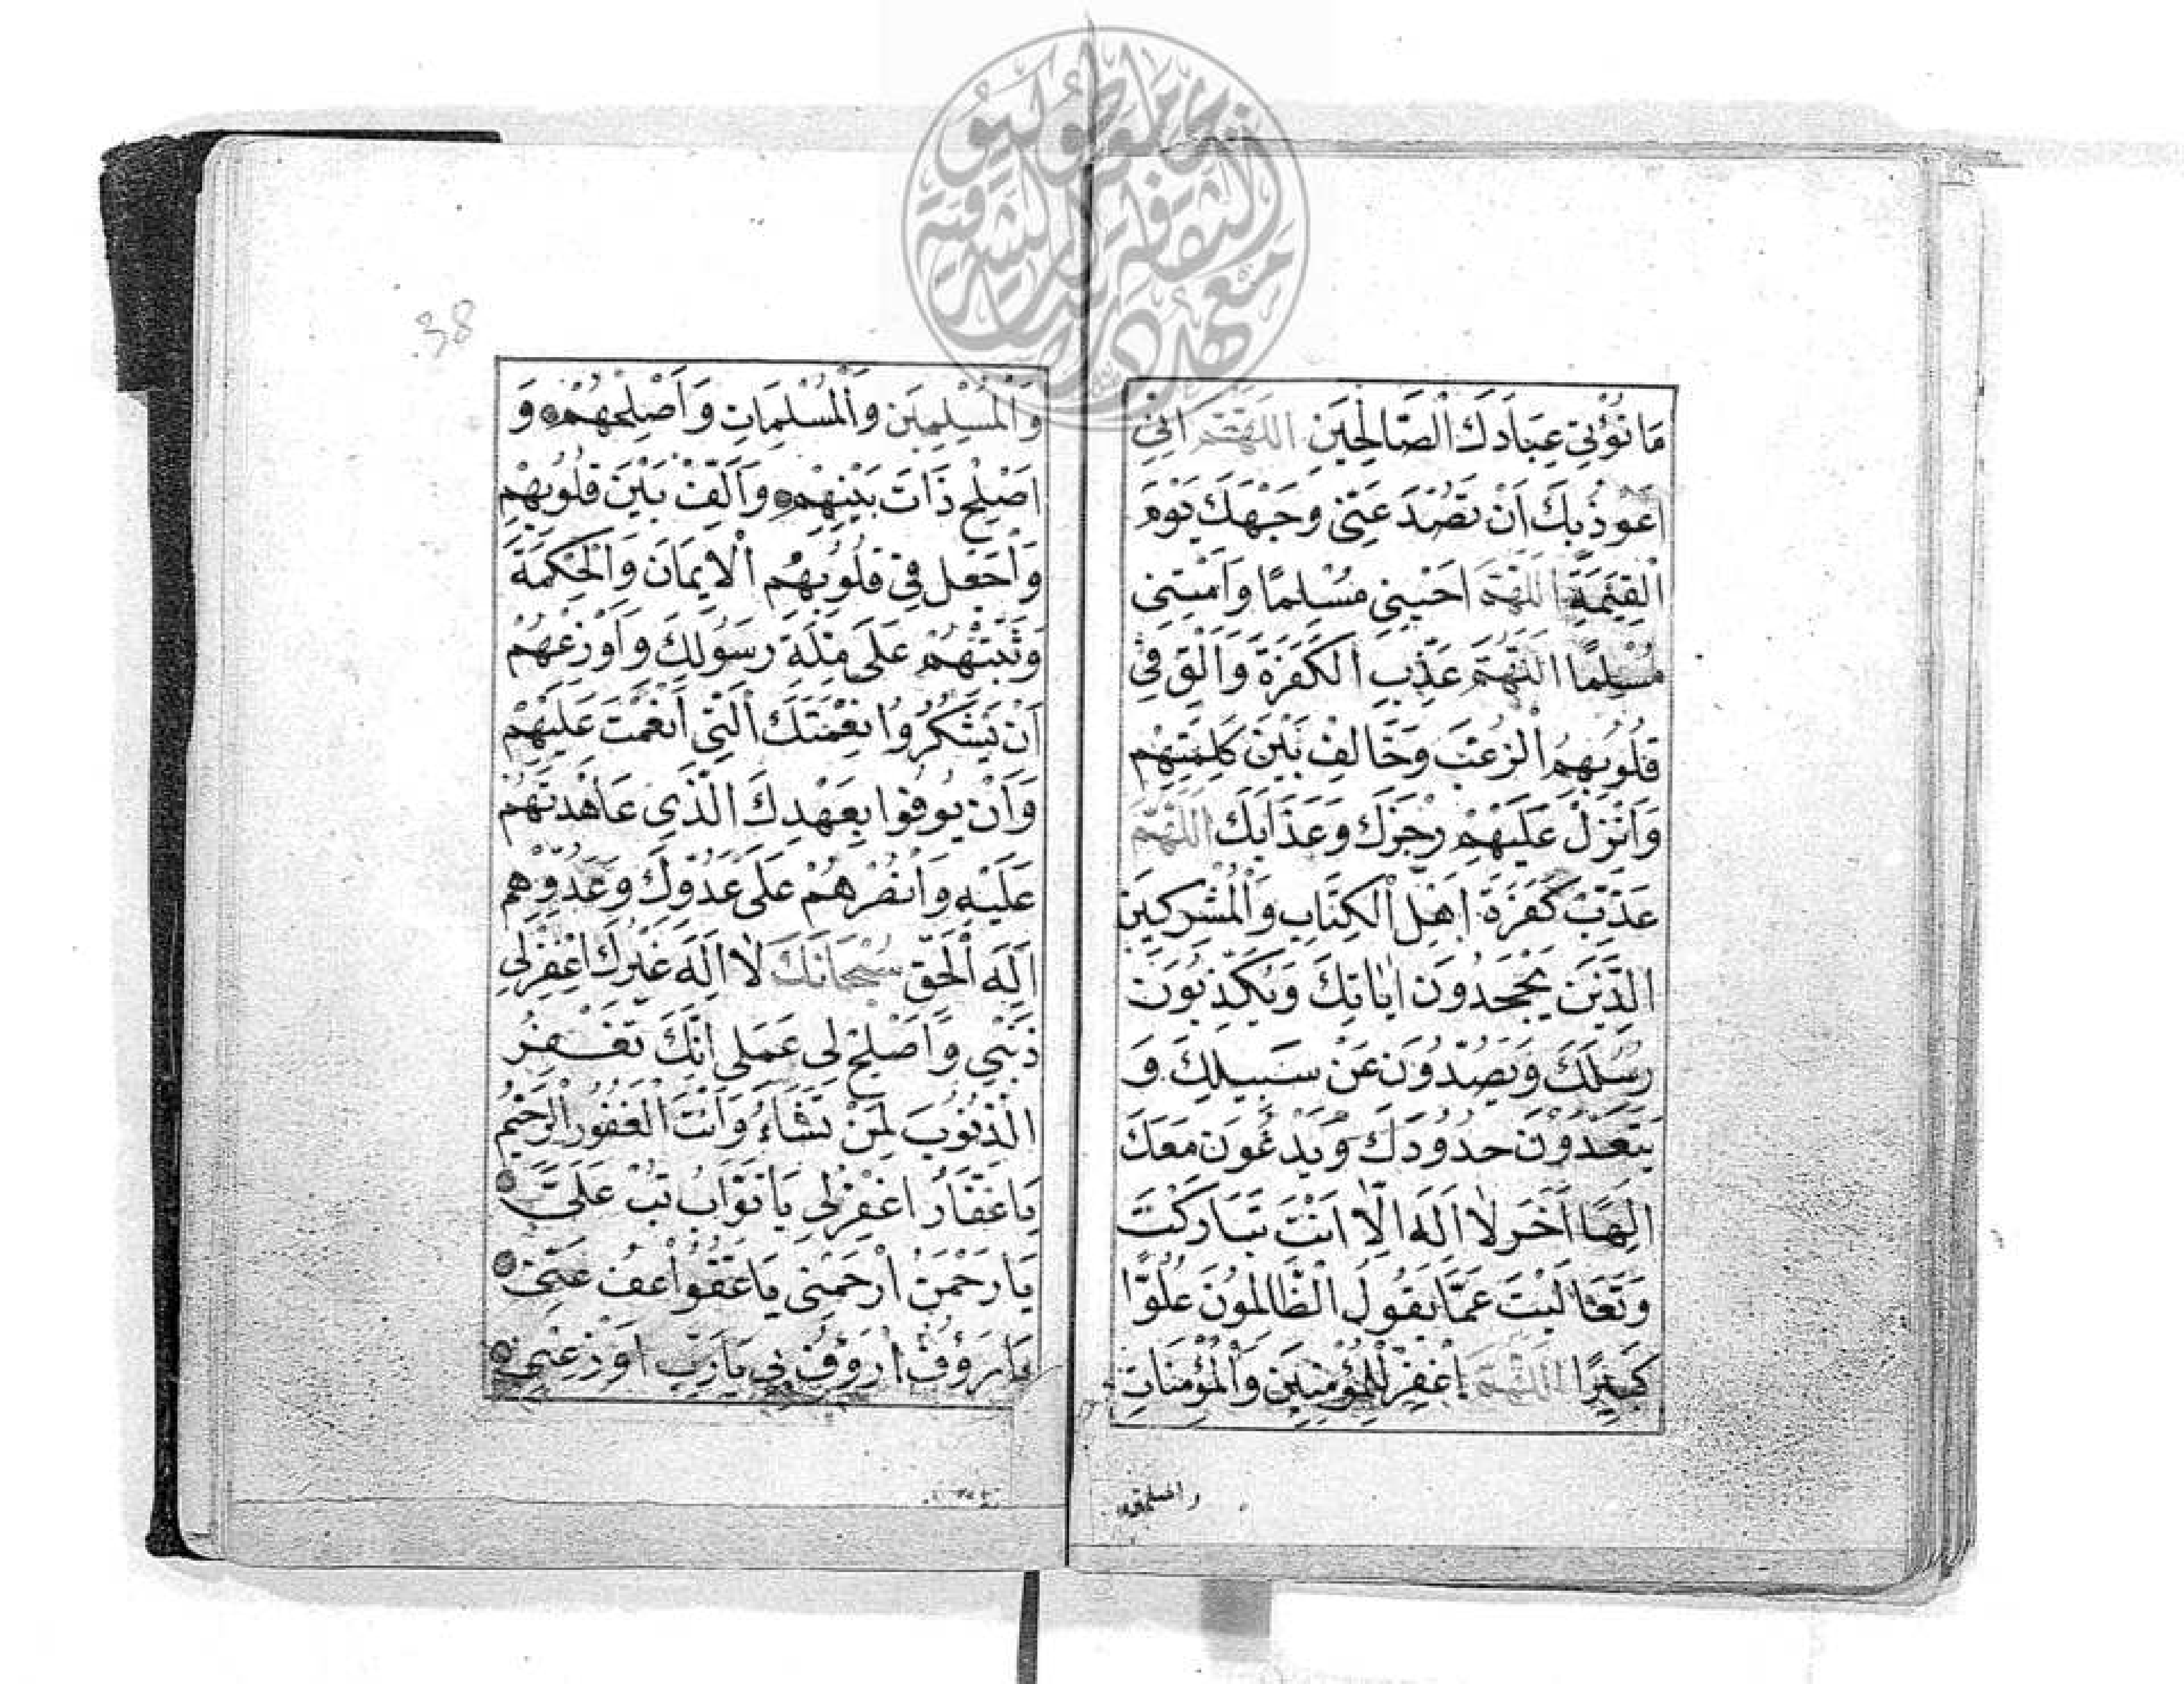 مَا تُؤْتِي عِبَادَكَ الصَّالِحِينَ اللَّهُمَّ اِنِّي
اَعُوذُ بِكَ اَنْ تَصُدَّ عَنِّي وَجْهَكَ يَوْمَ
الْقِيٰمَةِ اللَّهُمَّ اَحْيِنِي مُسْلِمًا وَاَمِتْنِي
مُسْلِمًا اللَّهُمَّ عَذِّبِ الْكَفَرَةَ وَاَلْقِ فِي
قُلُوبِهِمُ الرُّعْبَ وَخَالِفْ بَيْنَ كَلِمَتِهِمْ
وَاَنْزِلْ عَلَيْهِمْ رِجْزَكَ وَعَذَابَكَ اللَّهُمَّ
عَذِّبْ كَفَرَةَ اَهْلِ الْكِتَابِ وَالْمُشْرِكِينَ
الَّذِينَ يَجْحَدُونَ اٰيَاتِكَ وَيُكَذِّبُونَ
رُسُلَكَ وَيَصُدُّونَ عَنْ سَبِيلِكَ وَ
يَتَعَدَّوْنَ حُدُودَكَ وَيَدْعُونَ مَعَكَ
اِلٰهًا اٰخَرَ لَا اِلٰهَ اِلَّا اَنْتَ تَبَارَكْتَ
وَتَعَالَيْتَ عَمَّا يَقُولُ الظَّالِمُونَ عُلُوًّا
كَبِيرًا اللَّهُمَّ اغْفِرْ لِلْمُؤْمِنِينَ وَالْمُؤْمِنَاتِ
38
وَالْمُسْلِمِينَ وَالْمُسْلِمَاتِ وَاَصْلِحْهُمْ وَ
اَصْلِحْ ذَاتَ بَيْنِهِمْ وَاَلِّفْ بَيْنَ قُلُوبِهِمْ
وَاجْعَلْ فِي قُلُوبِهِمُ الْاِيمَانَ وَالْحِكْمَةَ
وَثَبِّتْهُمْ عَلَى مِلَّةِ رَسُولِكَ وَاَوْزِعْهُمْ
اَنْ يَشْكُرُوا نِعْمَتَكَ الَّتِي اَنْعَمْتَ عَلَيْهِمْ
وَاَنْ يُوفُوا بِعَهْدِكَ الَّذِي عَاهَدْتَهُمْ
عَلَيْهِ وَانْصُرْهُمْ عَلَى عَدُوِّكَ وَعَدُوِّهِمْ
اِلٰهَ الْحَقِّ سُبْحَانَكَ لَا اِلٰهَ غَيْرُكَ اغْفِرْ لِي
ذَنْبِي وَاَصْلِحْ لِي عَمَلِي اِنَّكَ تَغْفِرُ
الذُّنُوبَ لِمَنْ تَشَاءُ وَاَنْتَ الْغَفُورُ الرَّحِيمُ
يَا غَفَّارُ اغْفِرْ لِي يَا تَوَّابُ تُبْ عَلَيَّ
يَا رَحْمٰنُ ارْحَمْنِي يَا عَفُوُّ اعْفُ عَنِّي
يَا رَؤُفُ ارْؤُفْ بِي يَا رَبِّ اَوْزِعْنِي